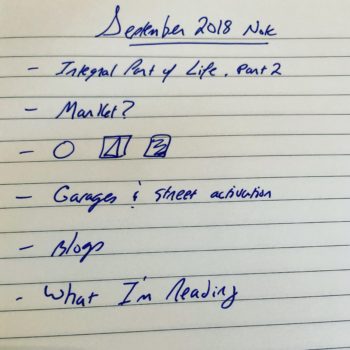 September 2018 Note
- Integral Part of Life. Part 2
- Market?
-
- Garages & street activation
- Blogs
- What I'm Reading